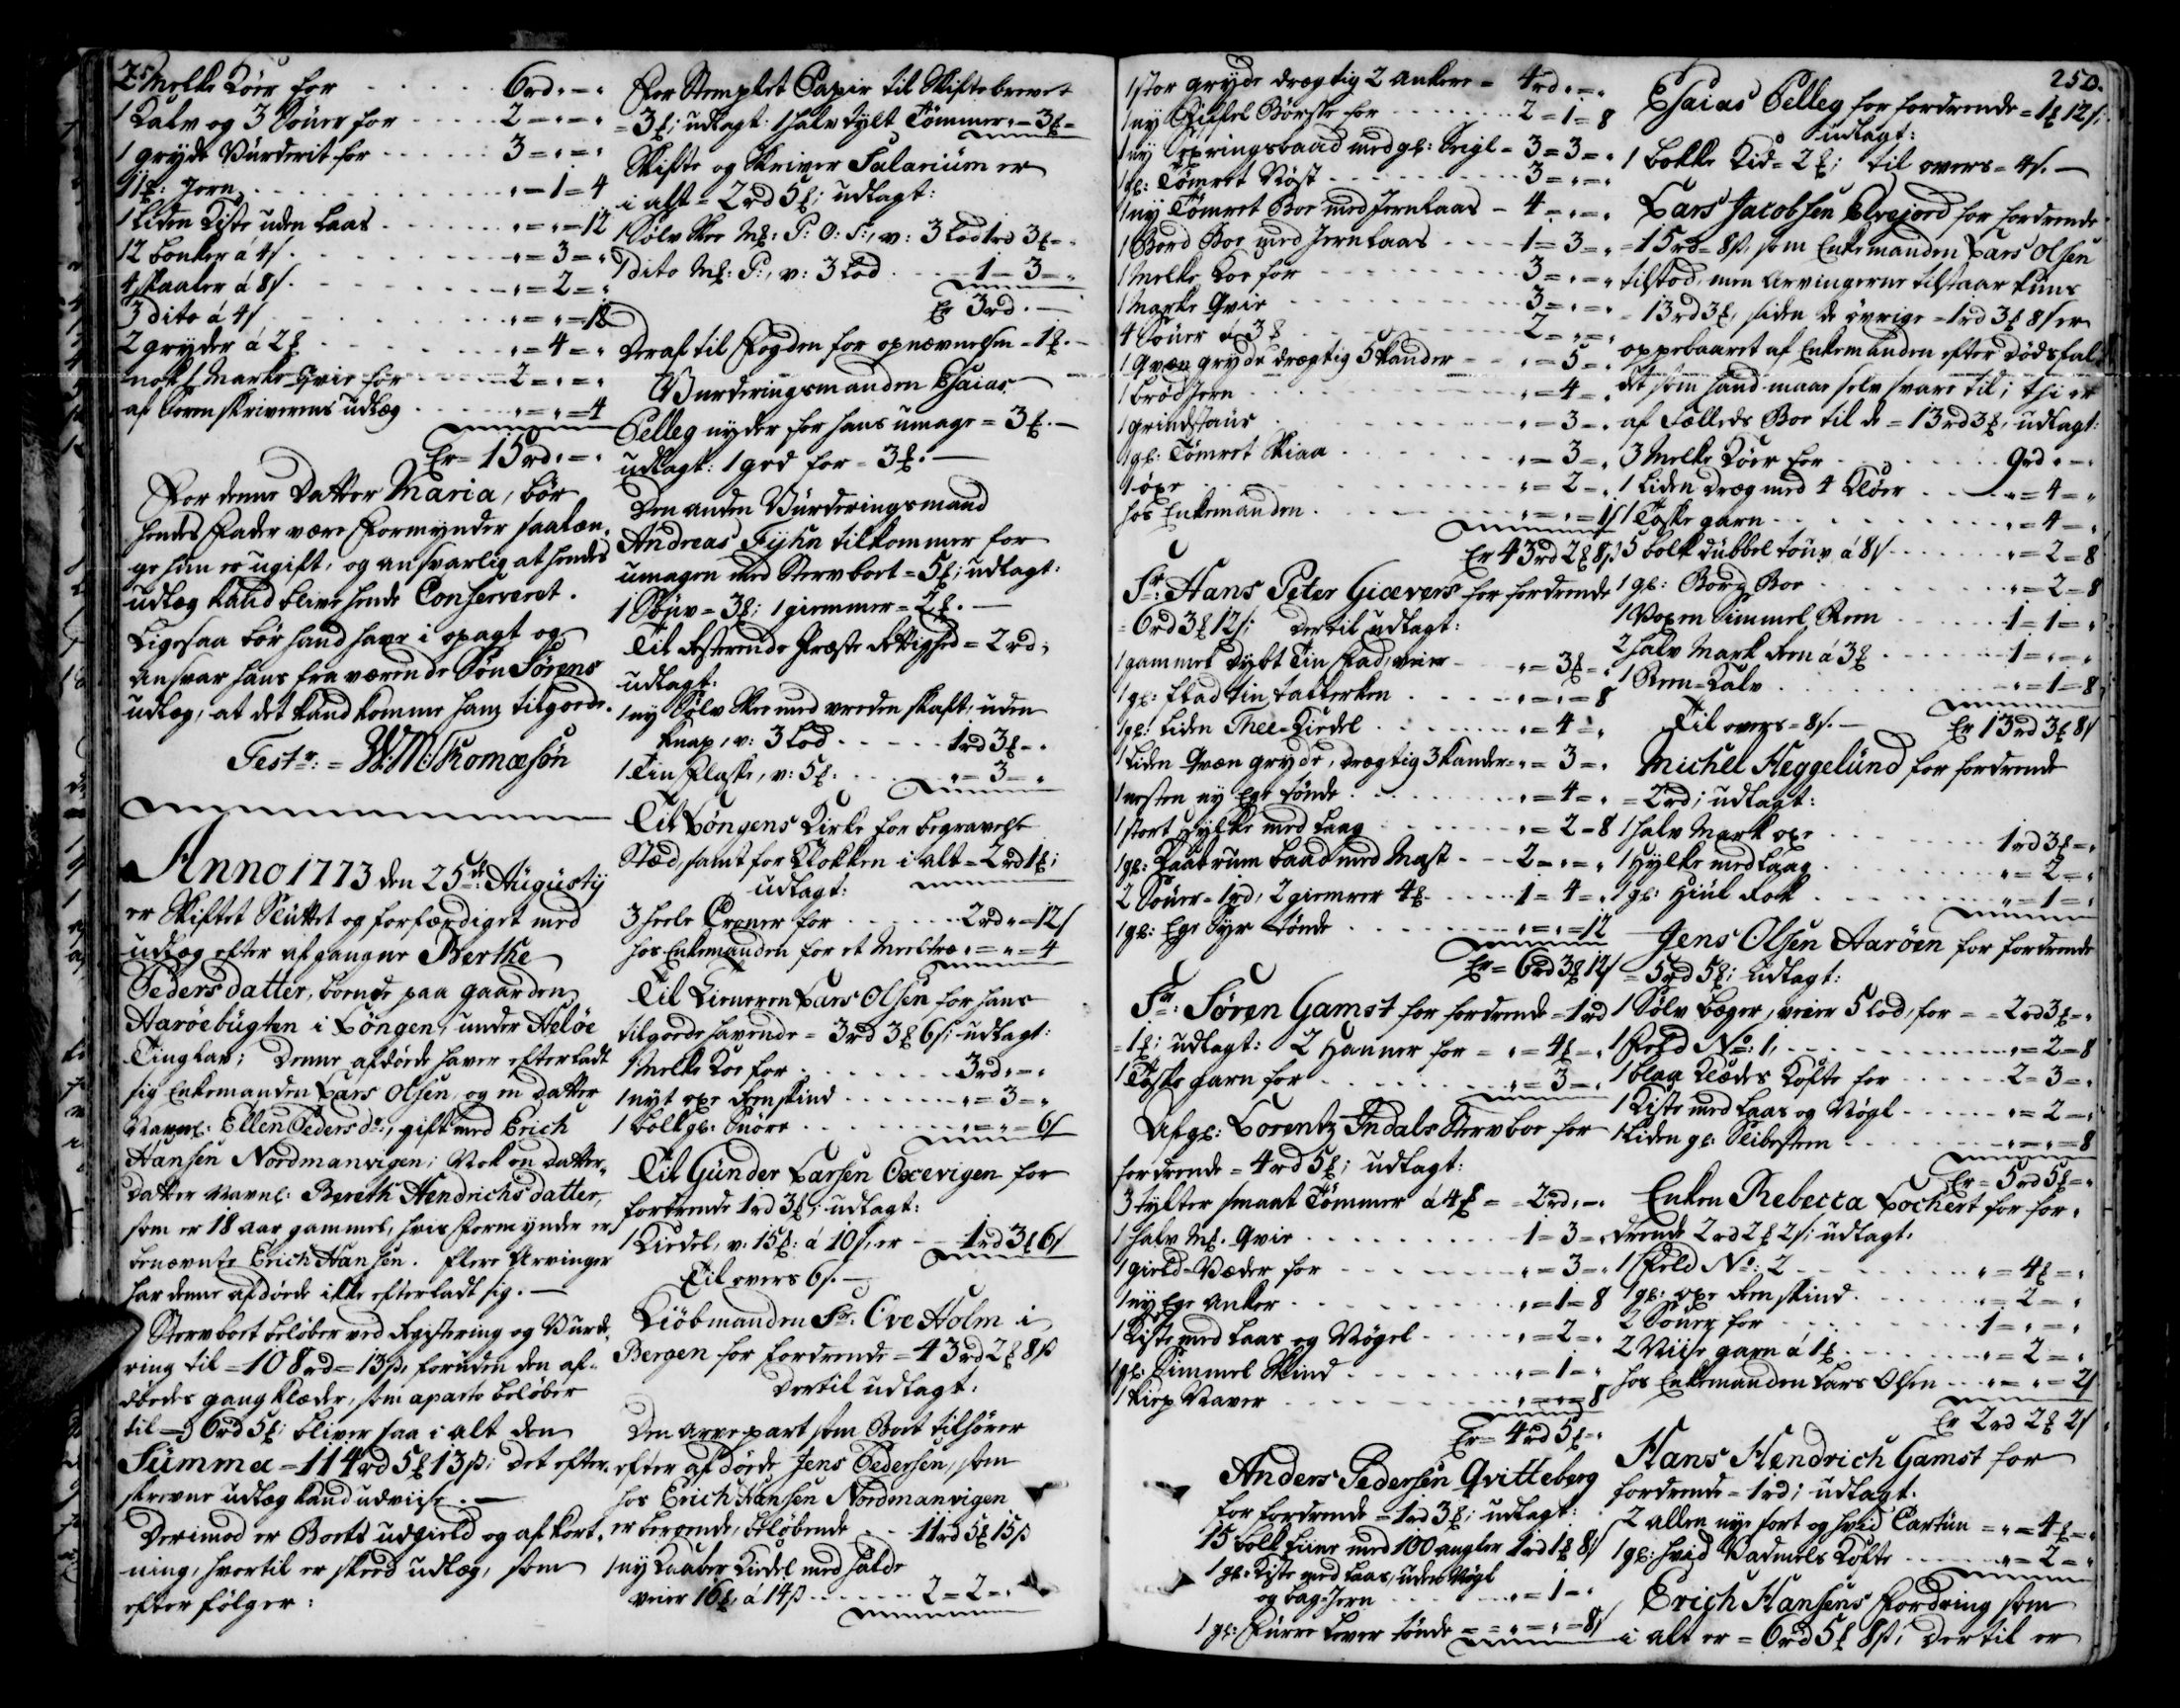 2 Melke Kiør for - - - - - - 6rd " - "
1 Kalv og 3 Souer for - - - - - 2 = " = "
1 gryde Vurderit for - - - - - - 3 = " = "
Jern - - - - - - - - - " = 1 = 4
1 liden Kiste uden Laas - - - - - " = " = 12
12 bonker á 4 s - - - - - - " = 3 = "
4 skaaler á 8 s - - - - - - - " = 2 = "
3 dito á 4 s - - - - - - - " = " = 12
2 gryder á 2 - - - - - - - - " = 4 = "
nok ½ Marke Qvie for - - - - - 2 = " = "
af Sorenskriverens udlæg - - - - - " = " = 4
Er = 15rd " = "
For denne Datter Maria, bør
hendes Fader være Formynder saalæn-
ge hun er ugift, og ansvarlig at hendes
udlæg kand blive hende Conserveret.
Ligesaa bør hand have i opagt og
ansvar hans fra værende Søn Sørens
udlæg, at det kand komme ham tilgode.
Test: = W: M: Thomæsøn
Anno 1773 den 25de Augustij
er Skiftet Sluttet og forfærdiget med
udlæg efter afgangne Berthe
Peders datter, boende paa gaarden
Aarøebugten i Løngen, under Heløe
Tinglav; denne afdøde haver efterladt
sig Enkemanden Lars Olsen, og en datter
Navnl: Ellen Peders dr:, gift med Erich
Hansen Nordmanvigen; Nok en datter-
datter Navnl: Bereth Hendrichs datter,
som er 18 aar gammel, hvis Formynder er
benævnte Erich Hansen. flere Arvinger
har denne afdøde ikke efterladt sig. —
Stervboet beløber ved Registering og Vurde-
ring til = 108rd = 13 s, foruden den af-
dødes gang klæder, som aparte beløber
til = 6rd 5; bliver saa i alt den
Summa = 114rd 5 13 s; det efter-
skrevne udlæg kand udviise. —
Derimod er Boets udgield og afkort-
ning, hvortil er skeed udlæg, som
efter følger:
For Stemplet Papir til Skiftebrevet
= 3; udlagt: 1 halv tylt Tømmer = 3 -
Skifte og Skriver Salarium er
i alt = 2rd 5; udlagt:
1 Sølv Skee P: O: S:, v: 3 Lod 1rd 3 = "
1 dito P:, v: 3 Lod - - - 1 - 3 = "
Er 3rd. —
Deraf til Fogden for opnævnelsen = 1. —
Vurderingsmanden Esaias
Pelleg nyder for hans umage = 3. —
udlagt: 1 ged for = 3. —
Den anden Vurderingsmand
Andreas Fyhn tilkommer for
umagen med Stervboet = 5; udlagt:
1 = 3; 1 giemmer = 2. —
Til Resterende Præste Rettighed = 2rd;
udlagt:
1 ny Sølv Skee med vreden skaft, uden
knap, v: 3 Lod - - - - - 1rd 3 = "
1 Tin Flaske, v: 5 - - - - - " = 3 = "
Til Løngens Kirke for begravelse
Stæd, samt for Klokken i alt = 2rd 1;
udlagt:
3 heele Croner for - - - - - 2rd " = 12 s
hos Enkemanden for et Meeltræ " = " = 4
Til Lars Olsen, for hans
tilgoede havende = 3rd 3 6 s; udlagt:
1 Melke Koe for - - - - - - 3rd " = "
1 nyt oxe Reenskind - - - - - " = 3 = "
1 bolk gl: Snøre - - - - - - " = " = 6 s
Til Gunder Larsen Oxevigen for
fordrende 1rd 3; udlagt:
1 Kiedel, v: 15: á 10 s, er - - 1rd 3 6 s
Til overs 6 s. —
Kiøbmanden Sr: Ove Holm i
Bergen for fordrende = 43rd 2 8 s
dertil udlagt:
Den arvepart som Boet tilhører
efter afdøde Jens Pedersen, som
hos Erich Hansen Nordmanvigen
er beroende, beløbende - - 11rd 5 15 s
1 ny Kaaber Kiedel med halde
veier 16, á 14 s - - - - - - 2 = 2 = "
1 stor gryde drægtig 2 ankere = 4rd " = "
1 ny Børste for - - - - - - 2 = 1 = 8
1 ny baad med gl: Seigl = 3 = 3 = "
1 gl: Tømret Nøst - - - - - - - 3 = " = "
1 ny Tømret Boe med Jernlaas - 4 = " = "
1 Bord Boe med Jernlaas - - - - 1 = 3 = "
1 Melke Koe for - - - - - - - 3 = " = "
1 Marke Qvie - - - - - - - - 3 = " = "
4 Souer á 3 - - - - - - - 2 = " = "
1 Qvæn gryde drægtig 5 kander - - " = 5 = "
1 brød Jern - - - - - - - - " = 4 = "
1 grindstaur - - - - - - - " = 3 = "
1 gl: Tømret Skiaa - - - - - - " = 3 = "
1 øxe - - - - - - - - - " = 2 = "
hos Enkemanden - - - - - - " = " = 1 s
Er 43rd 2 8 s
Sr: Hans Peter Giævers for fordrende
= 6rd 3 12 s; dertil udlagt:
1 gammel dybt Tin Fad, veier - - " = 3 = "
1 gl: flad tin tallerken - - - - " = " = 8
1 gl: liden Thee-Kiedel - - - - - " = 4 = "
1 liden Qvæn gryde, drægtig 3 kander = " = 3 = "
1 nesten ny Ege tønde - - - - - - " = 4 = "
1 stort Hylke med laag - - - - - " = 2 = 8
1 gl: baad med Mast - - - 2 = " = "
2 Souer = 1rd, 2 giemrer 4 - - - - 1 = 4 = "
1 gl: Ege Syre tønde - - - - - - " = " = 12
Er = 6rd 3 12 s
Sr: Søren Gamst for fordrende = 1rd
= 1; udlagt: 2 Hanner for = " = 4 = "
1 Toske garn for - - - - - - " = 3 = "
Afgl: Lorentz Indals Stervboe for
fordrende = 4rd 5; udlagt:
3 tylter smaat Tømmer á 4 = 2rd " = "
1 halv Mk. Qvie - - - - - - - 1 = 3 = "
1 gield-Væder for - - - - - - " = 3 = "
1 ny Ege anker - - - - - - - " = 1 = 8
1 Kiste med Laas og Nøgel - - - " = 2 = "
1 gl: Simmel Skind - - - - - - " = 1 = "
Naver - - - - - - - - " = " = 8
Er = 4rd 5 = "
Anders Pedersen Qvitteberg
for fordrende = 1rd 3; udlagt:
15 bolk Liner med 100 angler 1rd 1 8 s
1 gl: Kiste med Laas, uden Nøgl
og bag-Jern - - - - - - " = 1 = "
1 gl: Furre Lever tønde = = " = " = 8 s
250.
Esaias Pelleg for fordrende = 1 12 s;
udlagt:
1 bokke Kid = 2; til overs = 4 s. —
Lars Jacobsen Elvejord for fordrende
= 15rd = 8 s, som Enkemanden Lars Olsen
tilstod, men Arvingerne tilstaar kuns
= 13rd 3, siden de øvrige = 1rd 3 8 s er
oppebaaret af Enkemanden efter dødsfald
det som hand maae selv svare til; thi er
af Fælleds Boe til de = 13rd 3, udlagt:
3 Melke Kiør for - - - - - - 9rd " = "
1 liden dræg med 4 Kløer - - - " = 4 = "
1 Toske garn - - - - - - - " = 4 = "
5 bolk dubbel touv á 8 s - - - - " = 2 = 8
1 gl: Borg Boe - - - - - - - " = 2 = 8
1 Voxen Simmel Reen - - - - - 1 = 1 = "
2 halv Mark Reen á 3 - - - - 1 = " = "
1 Reen-Kalv - - - - - - - " = 1 = 8
Til overs = 8 s. — Er 13rd 3 8 s
Michel Heggelund for fordrende
= 2rd; udlagt:
1 halv Mark oxe - - - - - 1rd 3 = "
1 Hylke med laag - - - - - - " = 2 = "
1 gl: Hiul Rok - - - - - - " = 1 = "
Jens Olsen Aarøen for fordrende
= 5rd 5; Udlagt:
1 Sølv bæger, veier 5 Lod, for = = 2rd 3 = "
1 Feld No: 1, - - - - - - - " = 2 = 8
1 blaa Klædes Kofte for - - - - 2 = 3 = "
1 Kiste med Laas og Nøgl - - - - " = 2 = "
1 liden gl: Slibesteen - - - - - " = " = 8
Er = 5rd 5 = "
Enken Rebecca Lochert for for-
drende 2rd 2 2 s; udlagt.
1 Feld No: 2 - - - - - - - " = 4 = "
1 gl: oxe Reenskind - - - - - " = 2 = "
2 Souer for - - - - - - - 1 = " = "
2 Viise garn á 1 - - - - - " = 2 = "
hos Enkemanden Lars Olsen - - " = " = 2 s
Er 2rd 2 2 s
Hans Hendrich Gamst for
fordrende = 1rd; udlagt.
2 allen nye sort og hvid Cartun = " = 4 = "
1 gl: hvid Vadmels Kofte - - - " = 2 = "
Erich Hansens Fordring som
i alt er = 6rd 5 8 s; dertil er